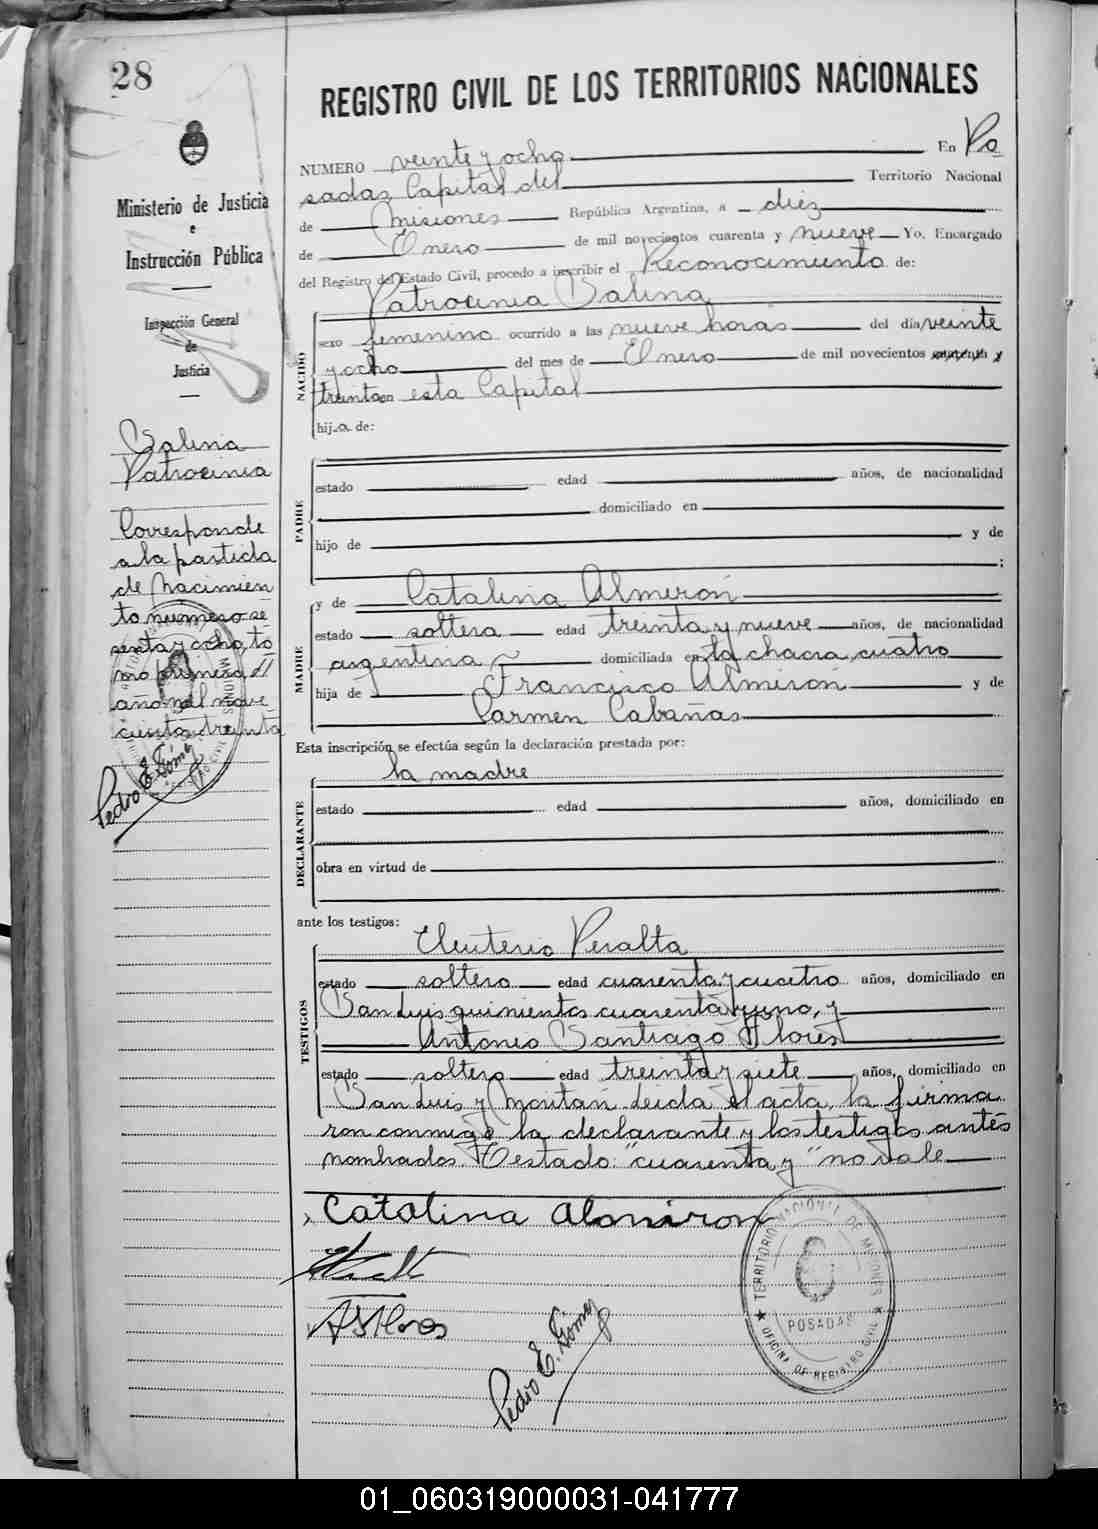 28
REGISTRO CIVIL DE LOS TERRITORIOS NACIONALES
Ministerio de Justicia
e
Instrucción Pública
Inspección General
de
Justicia
Salina
Patrocinia
Corresponde
a la partida
de Nacimien
to número se
senta y ocho, to
mo primero del
año mil nove
cientos treinta
Pedro E. Gómez
NUMERO veinte y ocho En Po
sadas Capital del Territorio Nacional
de Misiones República Argentina, a diez
de Enero de mil novecientos cuarenta y nueve Yo, Encargado
del Registro del Estado Civil, procedo a inscribir el Reconocimiento de:
Patrocinia Salina
NACIDO
sexo femenino ocurrido a las nueve horas del día veinte
y ocho del mes de Enero de mil novecientos cuarenta y
treinta en esta Capital
hija de:
PADRE
estado edad años, de nacionalidad
domiciliado en
hijo de y de
;
MADRE
y de Catalina Almirón
estado soltera edad treinta y nueve años, de nacionalidad
argentina domiciliada en la chacra cuatro
hija de Francisco Almirón y de
Carmen Cabañas
Esta inscripción se efectúa según la declaración prestada por:
DECLARANTE
la madre
estado edad años, domiciliado en
obra en virtud de
ante los testigos:
TESTIGOS
Eleuterio Peralta
estado soltero edad cuarenta y cuatro años, domiciliado en
San Luis quinientos cuarenta y uno, y
Antonio Santiago Flores
estado soltero edad treinta y siete años, domiciliado en
San Luis y Leida el acta, la firma
ron conmigo la declarante y los testigos antes
nombrados. Testado: "cuarenta y" no vale
Catalina Almiron
ASFlores
Pedro E. Gómez
TERRITORIO NACIONAL DE MISIONES
POSADAS
OFICINA DE REGISTRO CIVIL
01_060319000031-041777